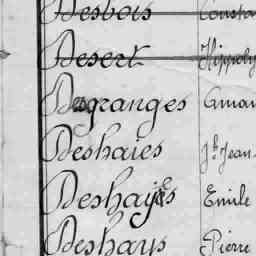 Desbois Consta
Desert Hippoly
Desgranges Aman
Deshaies Jh Jean
Deshayes Emile
Deshays Pierre